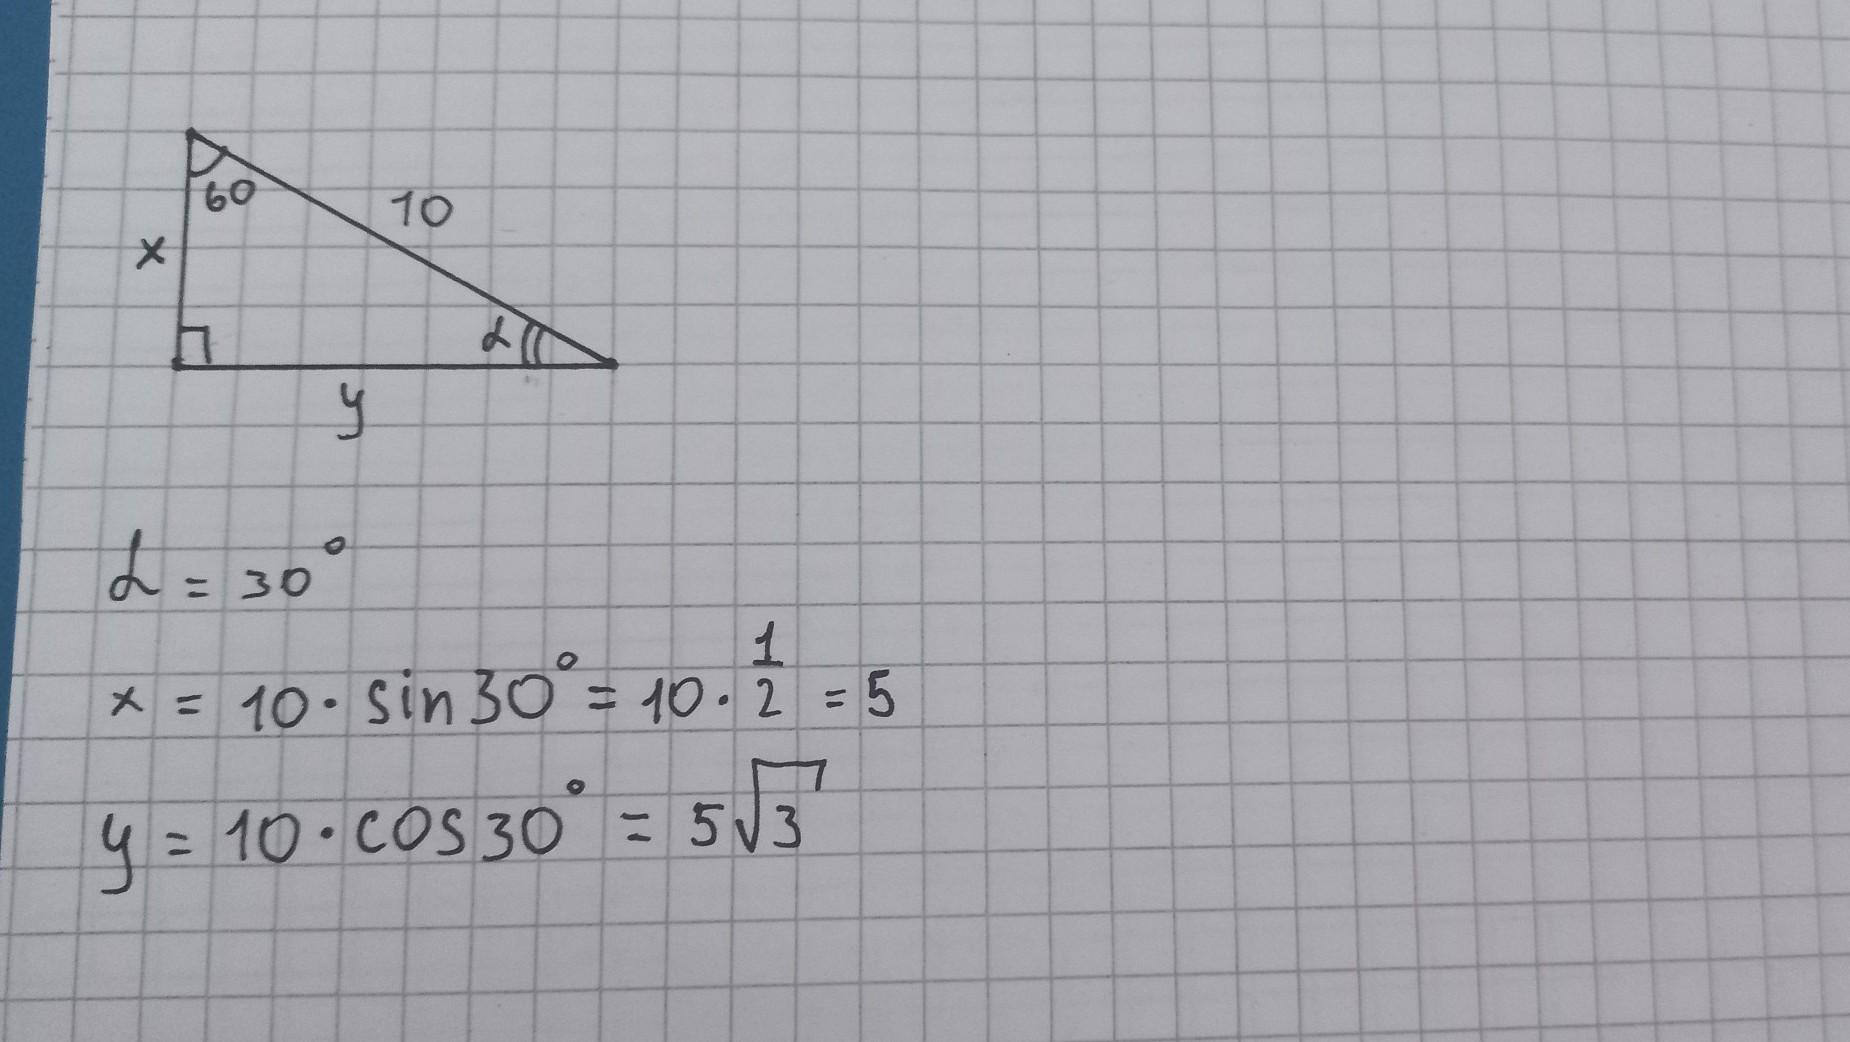 60
10
x
α
y
α = 30°
x = 10 · sin30° = 10 · 1/2 = 5
y = 10 · cos30° = 5√3